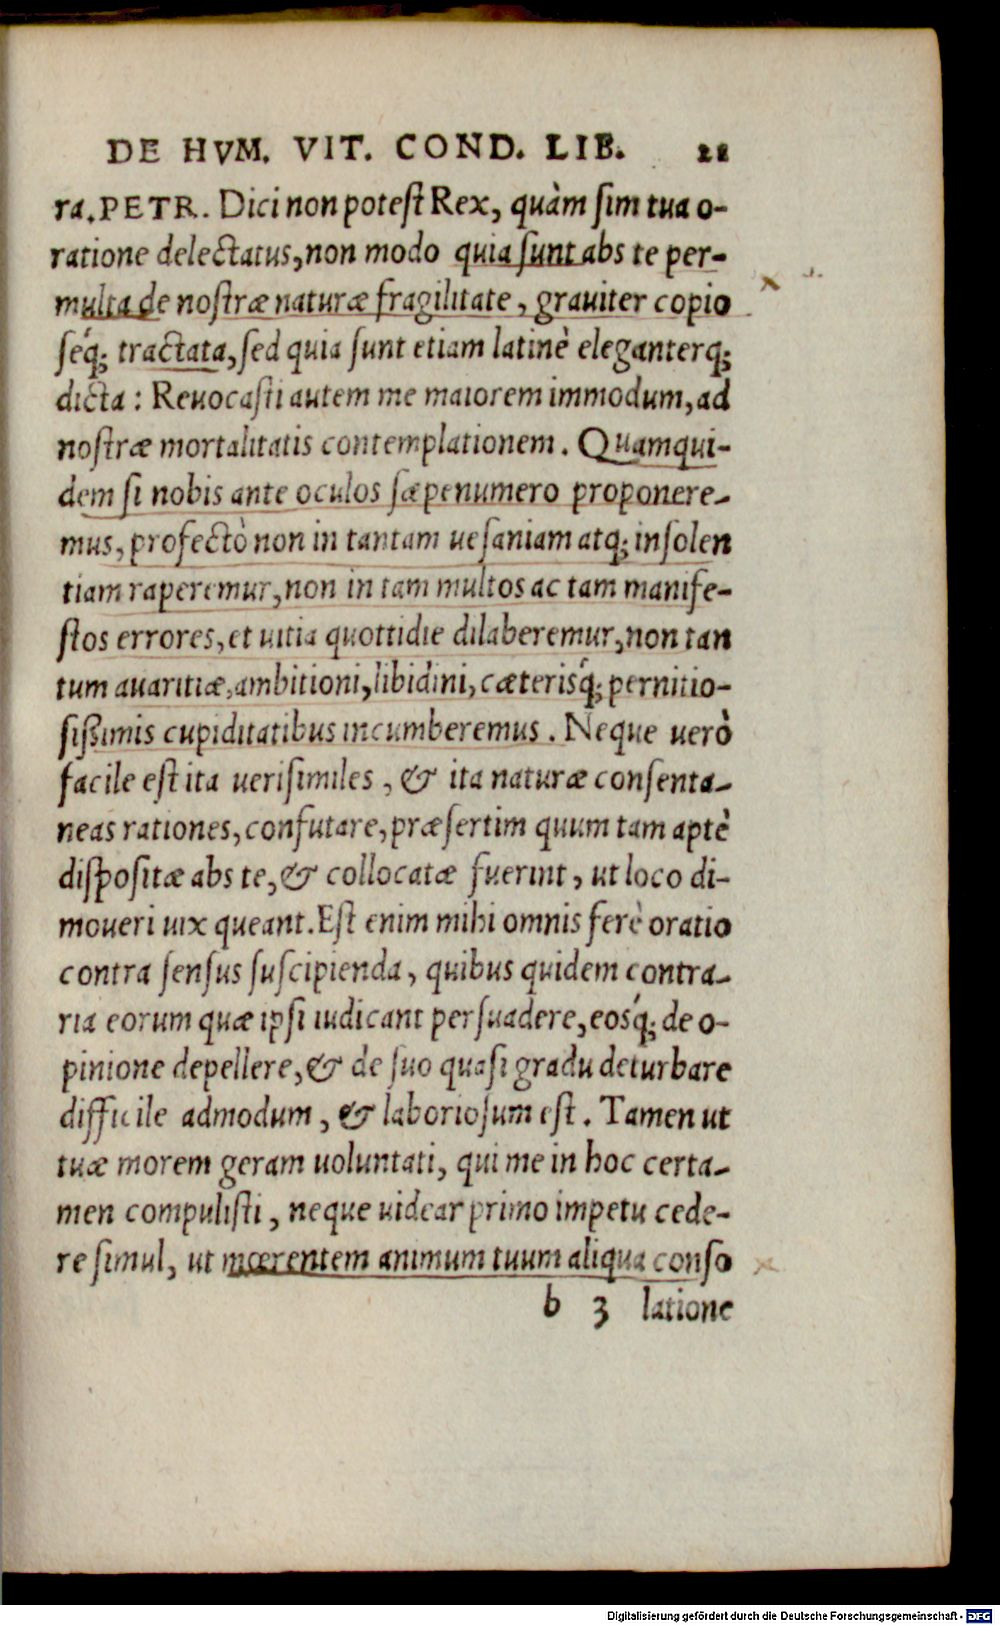 DE HVM. VIT. COND. LIB. 21
ra. PETR. Dici non potest Rex, quàm sim tua o-
ratione delectatus, non modo quia sunt abs te per-
multa de nostræ naturæ fragilitate, grauiter copio
séq; tractata, sed quia sunt etiam latinè eleganterq;
dicta: Reuocasti autem me maiorem immodum, ad
nostræ mortalitatis contemplationem. Quamqui-
dem si nobis ante oculos sæpenumero proponere-
mus, profectò non in tantam uesaniam atq; insolen
tiam raperemur, non in tam multos ac tam manife-
stos errores, et uitia quottidie dilaberemur, non tan
tum auaritiæ, ambitioni, libidini, cæterisq́; pernitio-
sißimis cupiditatibus incumberemus. Neque uerò
facile est ita uerisimiles, & ita naturæ consenta-
neas rationes, confutare, præsertim quum tam aptè
dispositæ abs te, & collocatæ fuerint, ut loco di-
moueri uix queant. Est enim mihi omnis ferè oratio
contra sensus suscipienda, quibus quidem contra-
ria eorum quæ ipsi iudicant persuadere, eosq́; de o-
pinione depellere, & de suo quasi gradu deturbare
difficile admodum, & laboriosum est. Tamen ut
tuæ morem geram uoluntati, qui me in hoc certa-
men compulisti, neque uidear primo impetu cede-
re simul, ut mœrentem animum tuum aliqua conso
b 3 latione
Digitalisierung gefördert durch die Deutsche Forschungsgemeinschaft - DFG